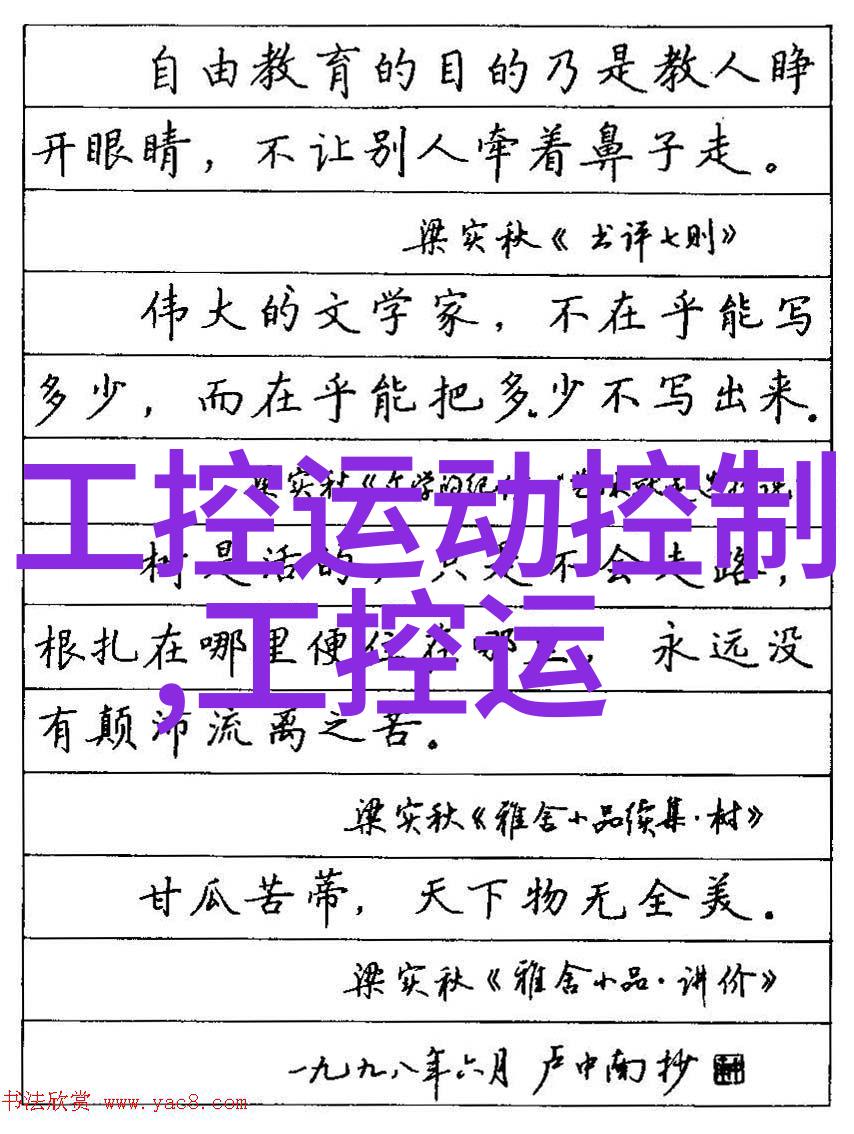 自由教育的目的乃是教人睁
开眼睛，不让别人牵着鼻子走。
梁实秋《书评七则》
伟大的文学家，不在乎能写
多少，而在乎能把多少不写出来。
梁实秋《文学的纪
工控运动控制
,工控运
树是活的，只是不会走路，
根扎在哪里便住在哪里，永远没
有颠沛流离之苦。
梁实秋《雅舍小品续集·树》
甘瓜苦蒂，天下物无全美。
梁实秋《雅舍小品·讲价》
一九九八年六月 卢中南抄
书法欣赏 www.yac8.com